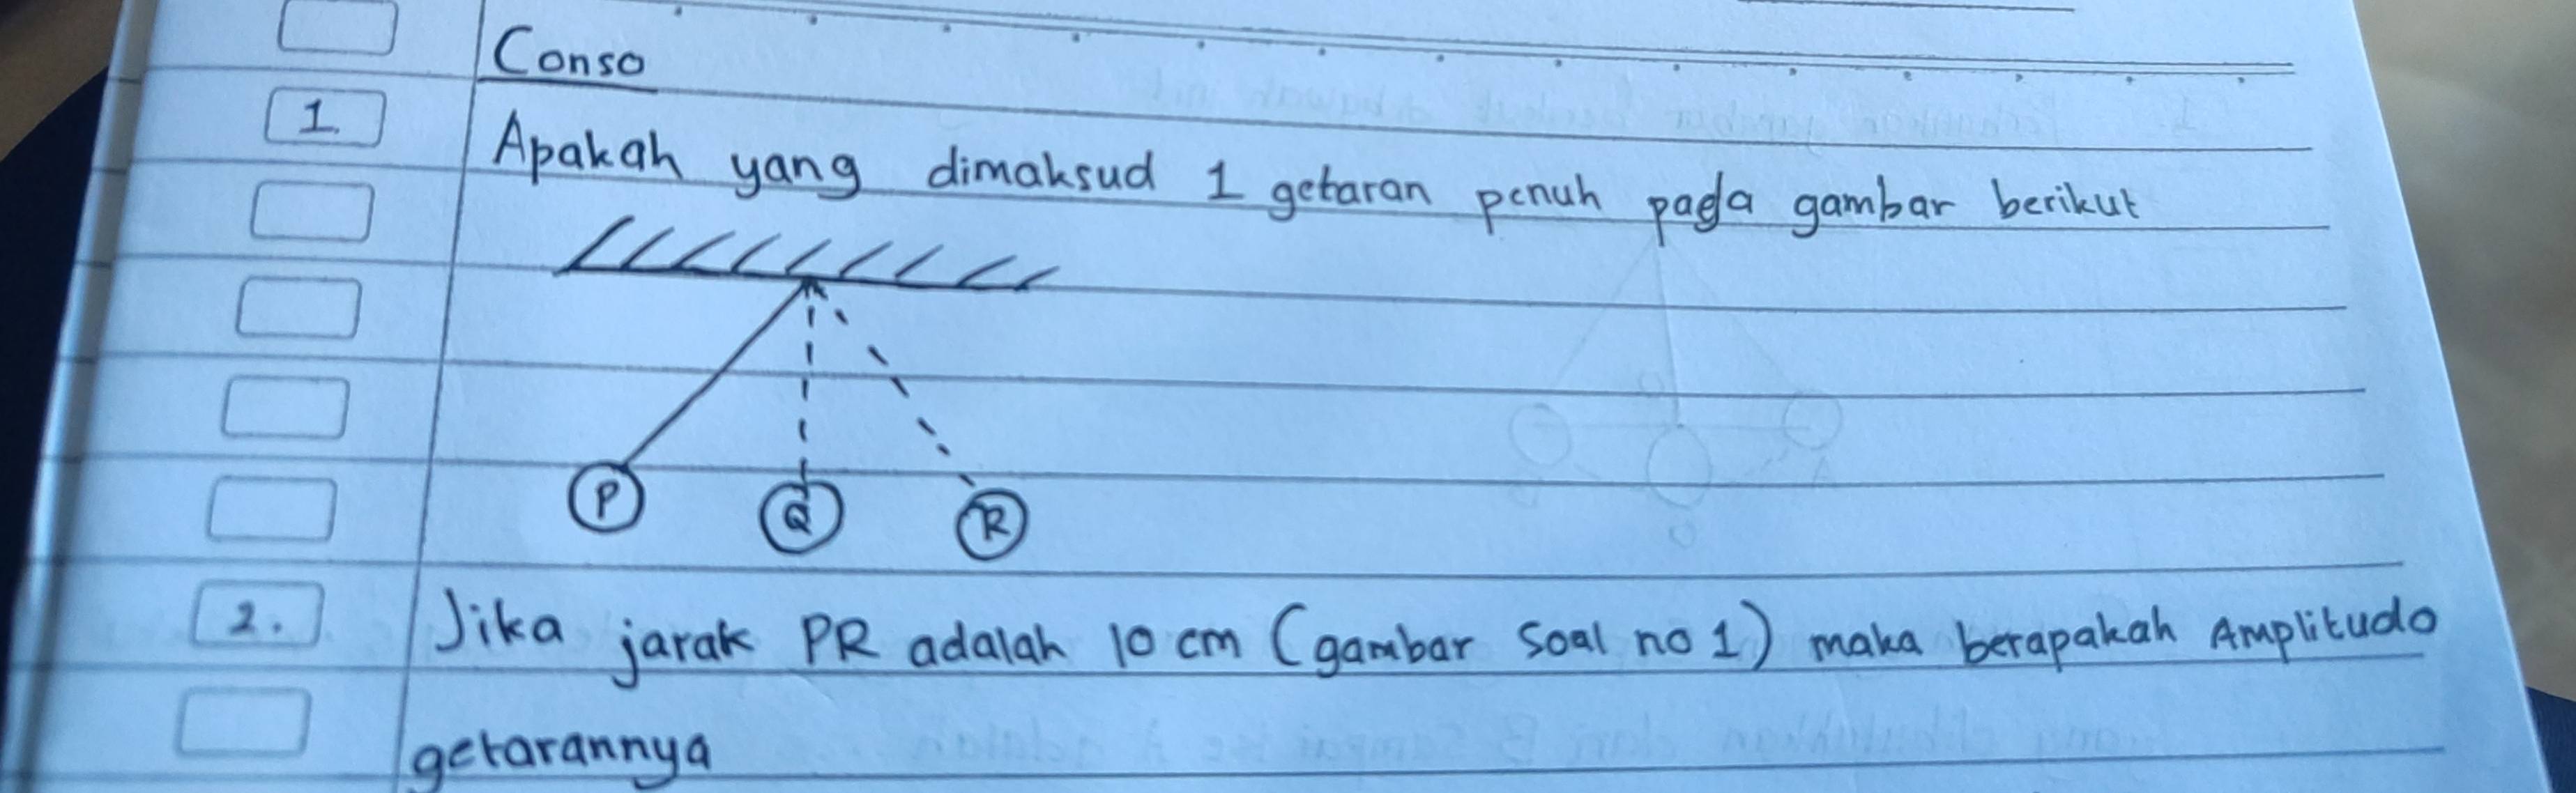 Conso
1. Apakah yang dimaksud 1 getaran penuh pada gambar berikut
P Q R
2. Jika jarak PR adalah 10 cm (gambar Soal no 1) maka berapakah Amplitudo
getarannya